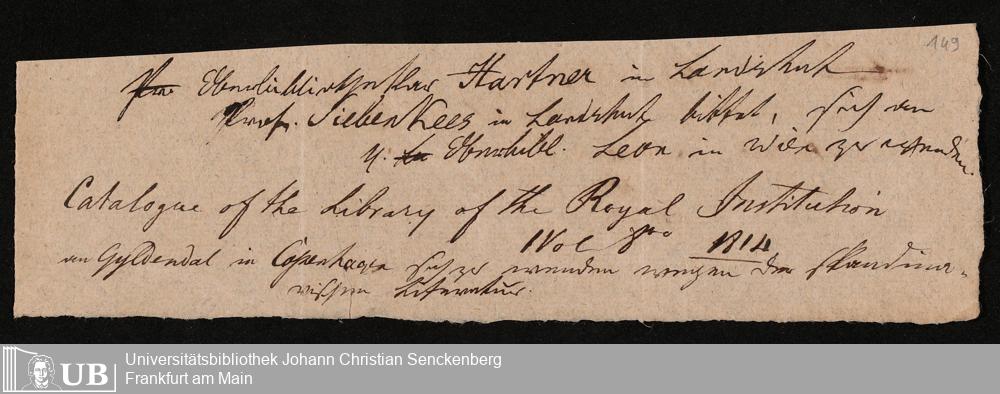 149
Oberbibliothekar Hartner in Landshut
Prof. Siebenkees in Landshut bittet, sich an
u. Oberbibl. Leon in Wien zu wenden.
Catalogue of the Library of the Royal Institution
1 Vol 8vo 1814
an Gyldendal in Copenhagen sich zu wenden wegen der skandina-
vischen Literatur.
UB
Universitätsbibliothek Johann Christian Senckenberg
Frankfurt am Main